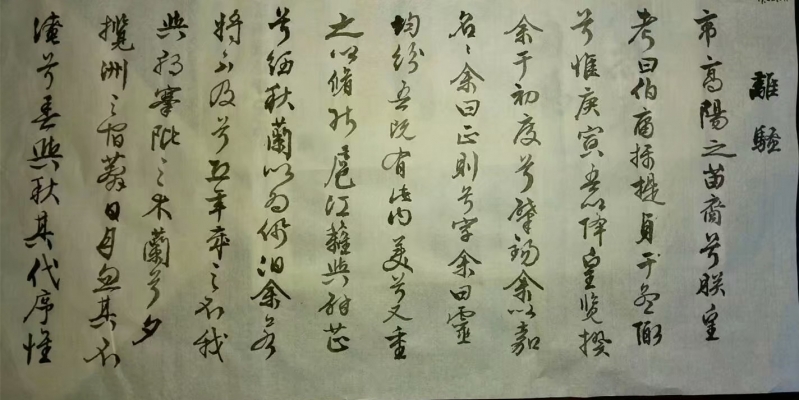 離騷
帝高陽之苗裔兮朕皇
考曰伯庸攝提貞于孟陬
兮惟庚寅吾以降皇覽揆
余于初度兮肇錫余以嘉
名名余曰正則兮字余曰靈
均紛吾既有此內美兮又重
之以脩能扈江蘺與辟芷
兮紉秋蘭以為佩汩余若
將不及兮恐年歲之不我
與朝搴阰之木蘭兮夕
攬洲之宿莽日月忽其不
淹兮春與秋其代序惟